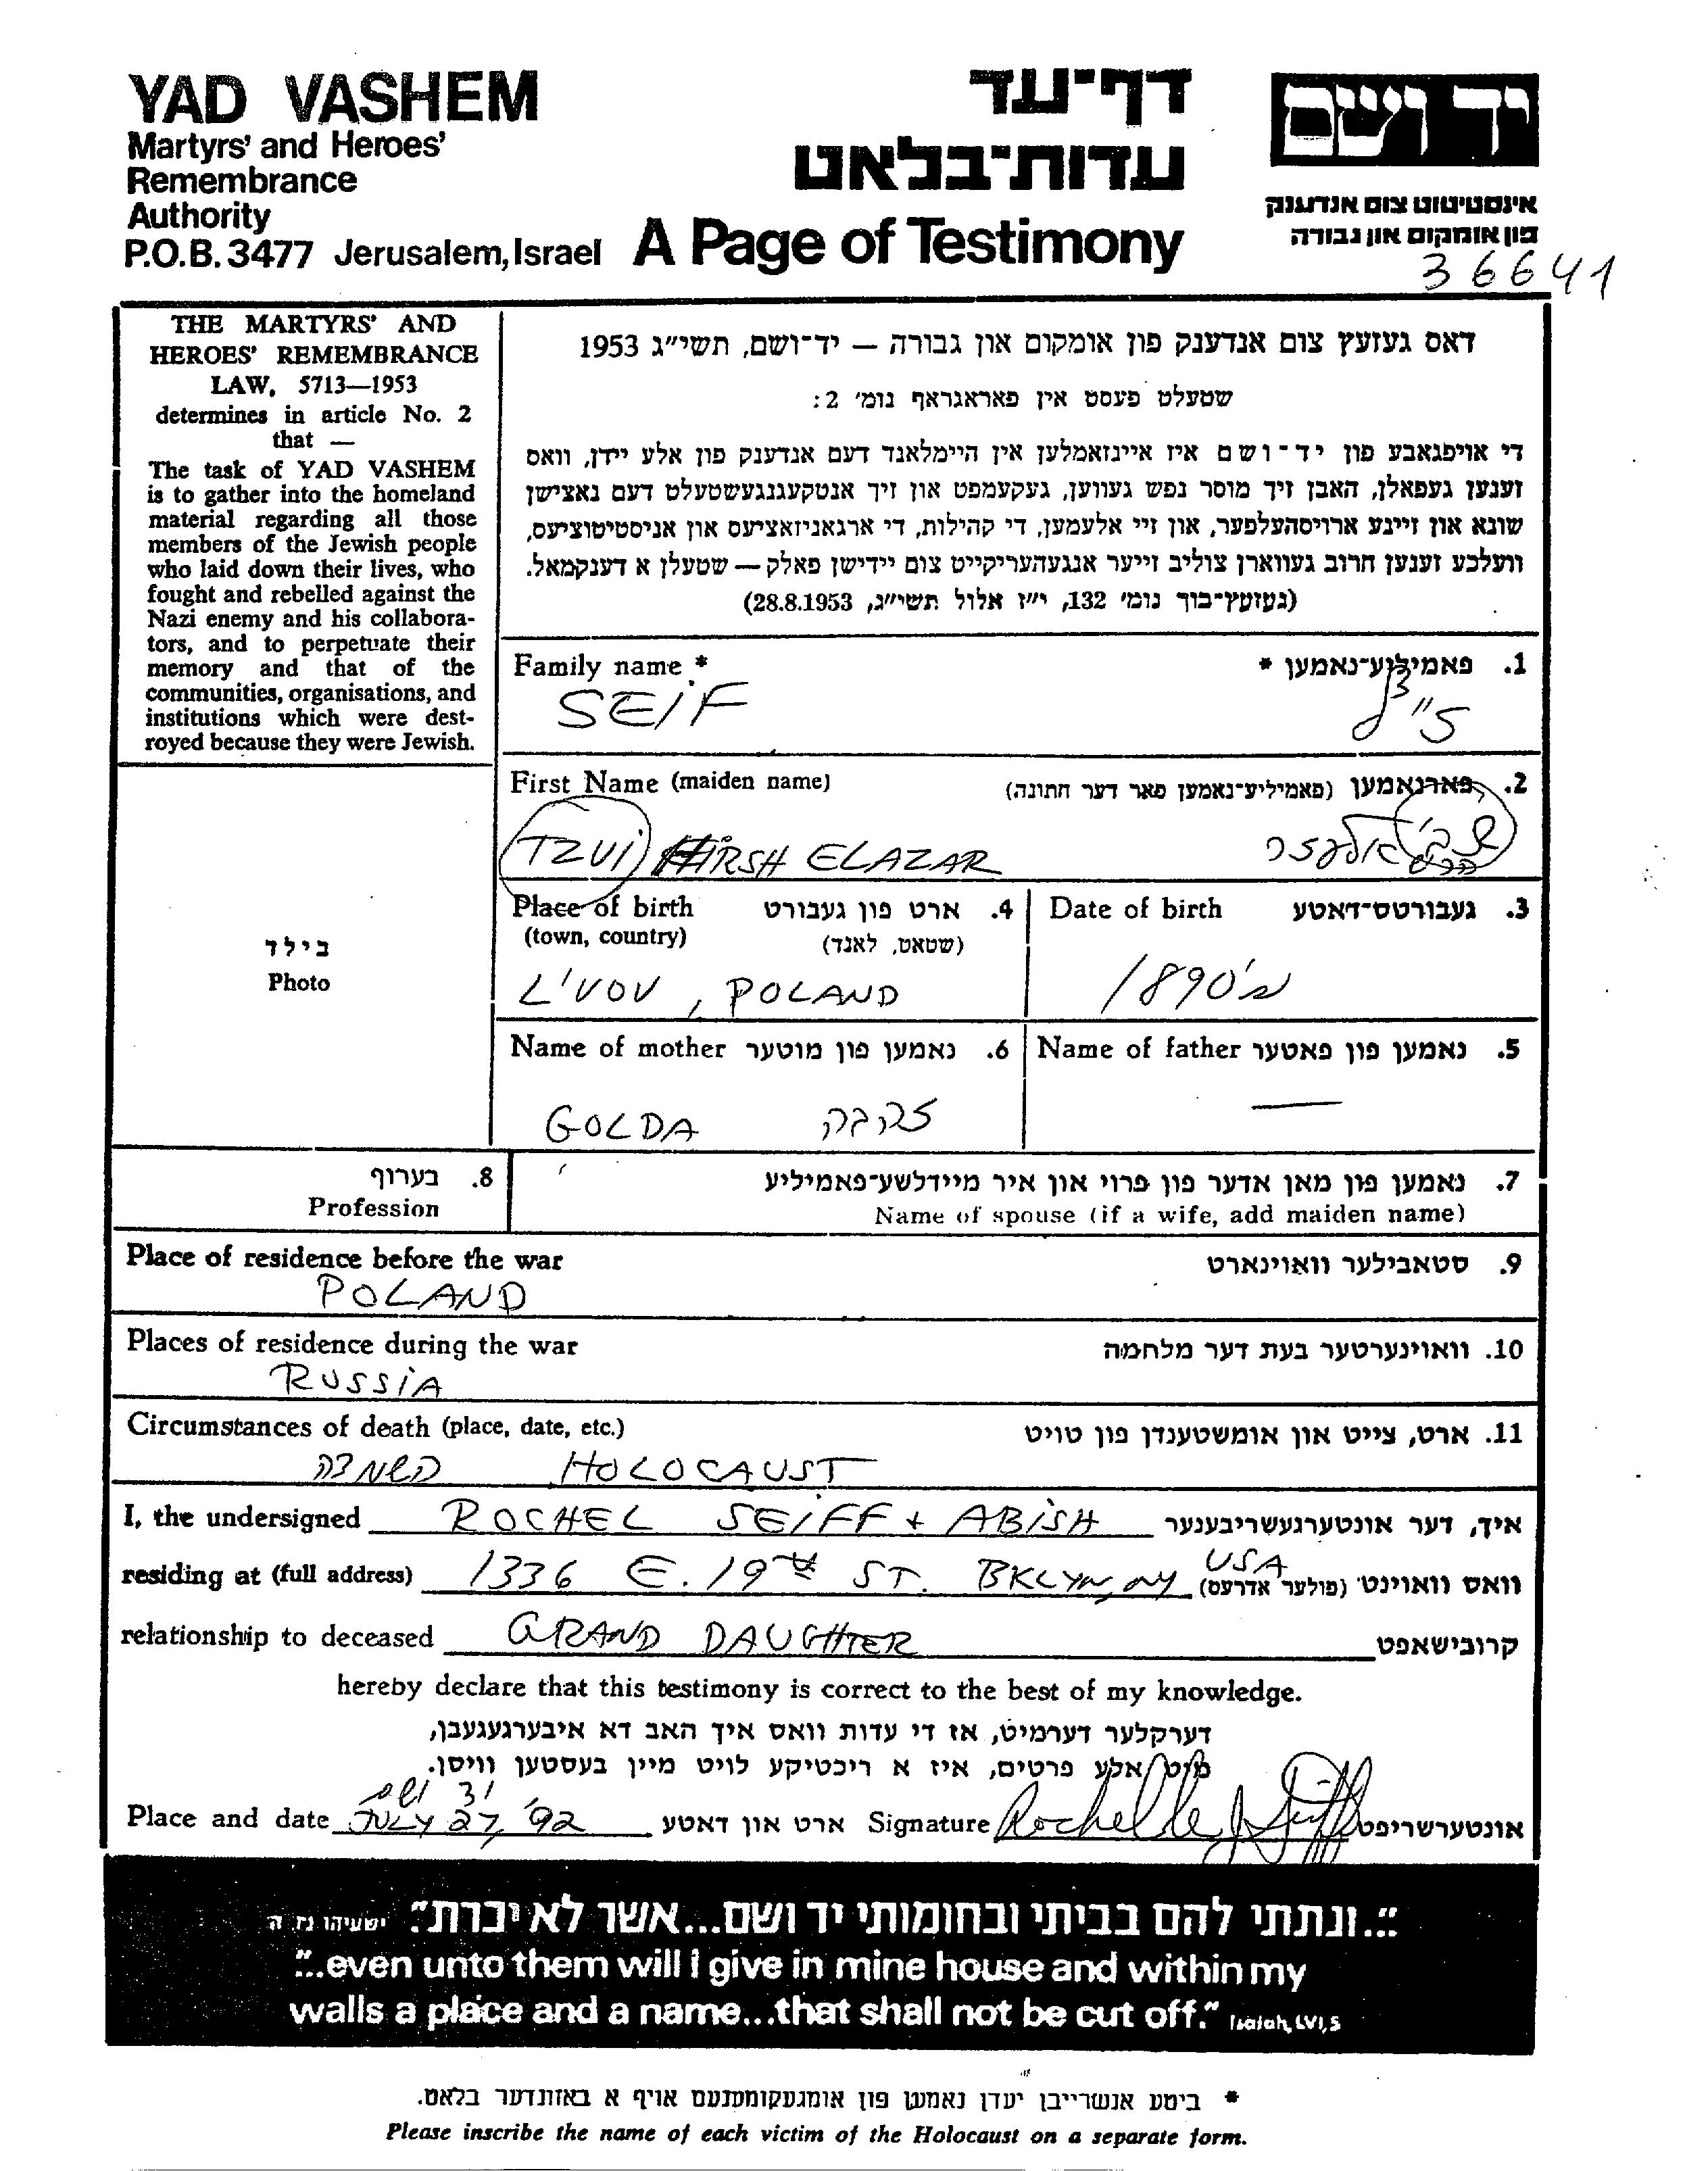 YAD VASHEM
Martyrs' and Heroes'
Remembrance
Authority
P.O.B. 3477 Jerusalem, Israel
דף־עד
עדות־בלאט
A Page of Testimony
יד ושם
אינסטיטוט צום אנדענק
פון אומקום און גבורה
36641
THE MARTYRS' AND
HEROES' REMEMBRANCE
LAW, 5713—1953
determines in article No. 2
that —
The task of YAD VASHEM
is to gather into the homeland
material regarding all those
members of the Jewish people
who laid down their lives, who
fought and rebelled against the
Nazi enemy and his collabora-
tors, and to perpetuate their
memory and that of the
communities, organisations, and
institutions which were dest-
royed because they were Jewish.
דאס געזעץ צום אנדענק פון אומקום און גבורה — יד־ושם, תשי״ג 1953
שטעלט פעסט אין פאראגראף נומ׳ 2:
די אויפגאבע פון יד־ושם איז איינזאמלען אין היימלאנד דעם אנדענק פון אלע יידן, וואס
זענען געפאלן, האבן זיך מוסר נפש געווען, געקעמפט און זיך אנטקעגנגעשטעלט דעם נאצישן
שונא און זיינע ארויסהעלפער, און זיי אלעמען, די קהילות, די ארגאניזאציעס און אניסטיטוציעס,
וועלכע זענען חרוב געווארן צוליב זייער אנגעהעריקייט צום יידישן פאלק — שטעלן א דענקמאל.
(געזעץ־בוך נומ׳ 132, י״ז אלול תשי״ג, 28.8.1953)
Family name * 1. פאמיליע־נאמען *
SEIF זי״ף
First Name (maiden name) 2. פארנאמען (פאמיליע־נאמען פאר דער חתונה)
TZVI HIRSH ELAZAR צבי אלעזר
Place of birth 4. ארט פון געבורט
(town, country) (שטאט, לאנד)
L'VOV, POLAND
Date of birth 3. געבורטס־דאטע
1890's
בילד
Photo
Name of mother 6. נאמען פון מוטער
GOLDA זהבה
Name of father 5. נאמען פון פאטער
—
8. בערוף
Profession
7. נאמען פון מאן אדער פון פרוי און איר מיידלשע־פאמיליע
Name of spouse (if a wife, add maiden name)
Place of residence before the war 9. סטאבילער וואוינארט
POLAND
Places of residence during the war 10. וואוינערטער בעת דער מלחמה
RUSSIA
Circumstances of death (place, date, etc.) 11. ארט, צייט און אומשטענדן פון טויט
השמדה HOLOCAUST
I, the undersigned ROCHEL SEIFF + ABISH איך, דער אונטערגעשריבענער
residing at (full address) 1336 E. 19th ST. BKLYN, NY USA וואס וואוינט (פולער אדרעס)
relationship to deceased GRAND DAUGHTER קרובישאפט
hereby declare that this testimony is correct to the best of my knowledge.
דערקלער דערמיט, אז די עדות וואס איך האב דא איבערגעגעבן,
מיט אלע פרטים, איז א ריכטיקע לויט מיין בעסטען וויסן.
Place and date JULY 27, '92 ארט און דאטע Signature Rochelle J Seiff אונטערשריפט
"...ונתתי להם בביתי ובחומותי יד ושם...אשר לא יכרת" ישעיהו נו ה
"...even unto them will I give in mine house and within my
walls a place and a name...that shall not be cut off." Isaiah, LVI, 5
* ביטע אנשרייבן יעדן נאמען פון אומגעקומענעם אויף א באזונדער בלאט.
Please inscribe the name of each victim of the Holocaust on a separate form.